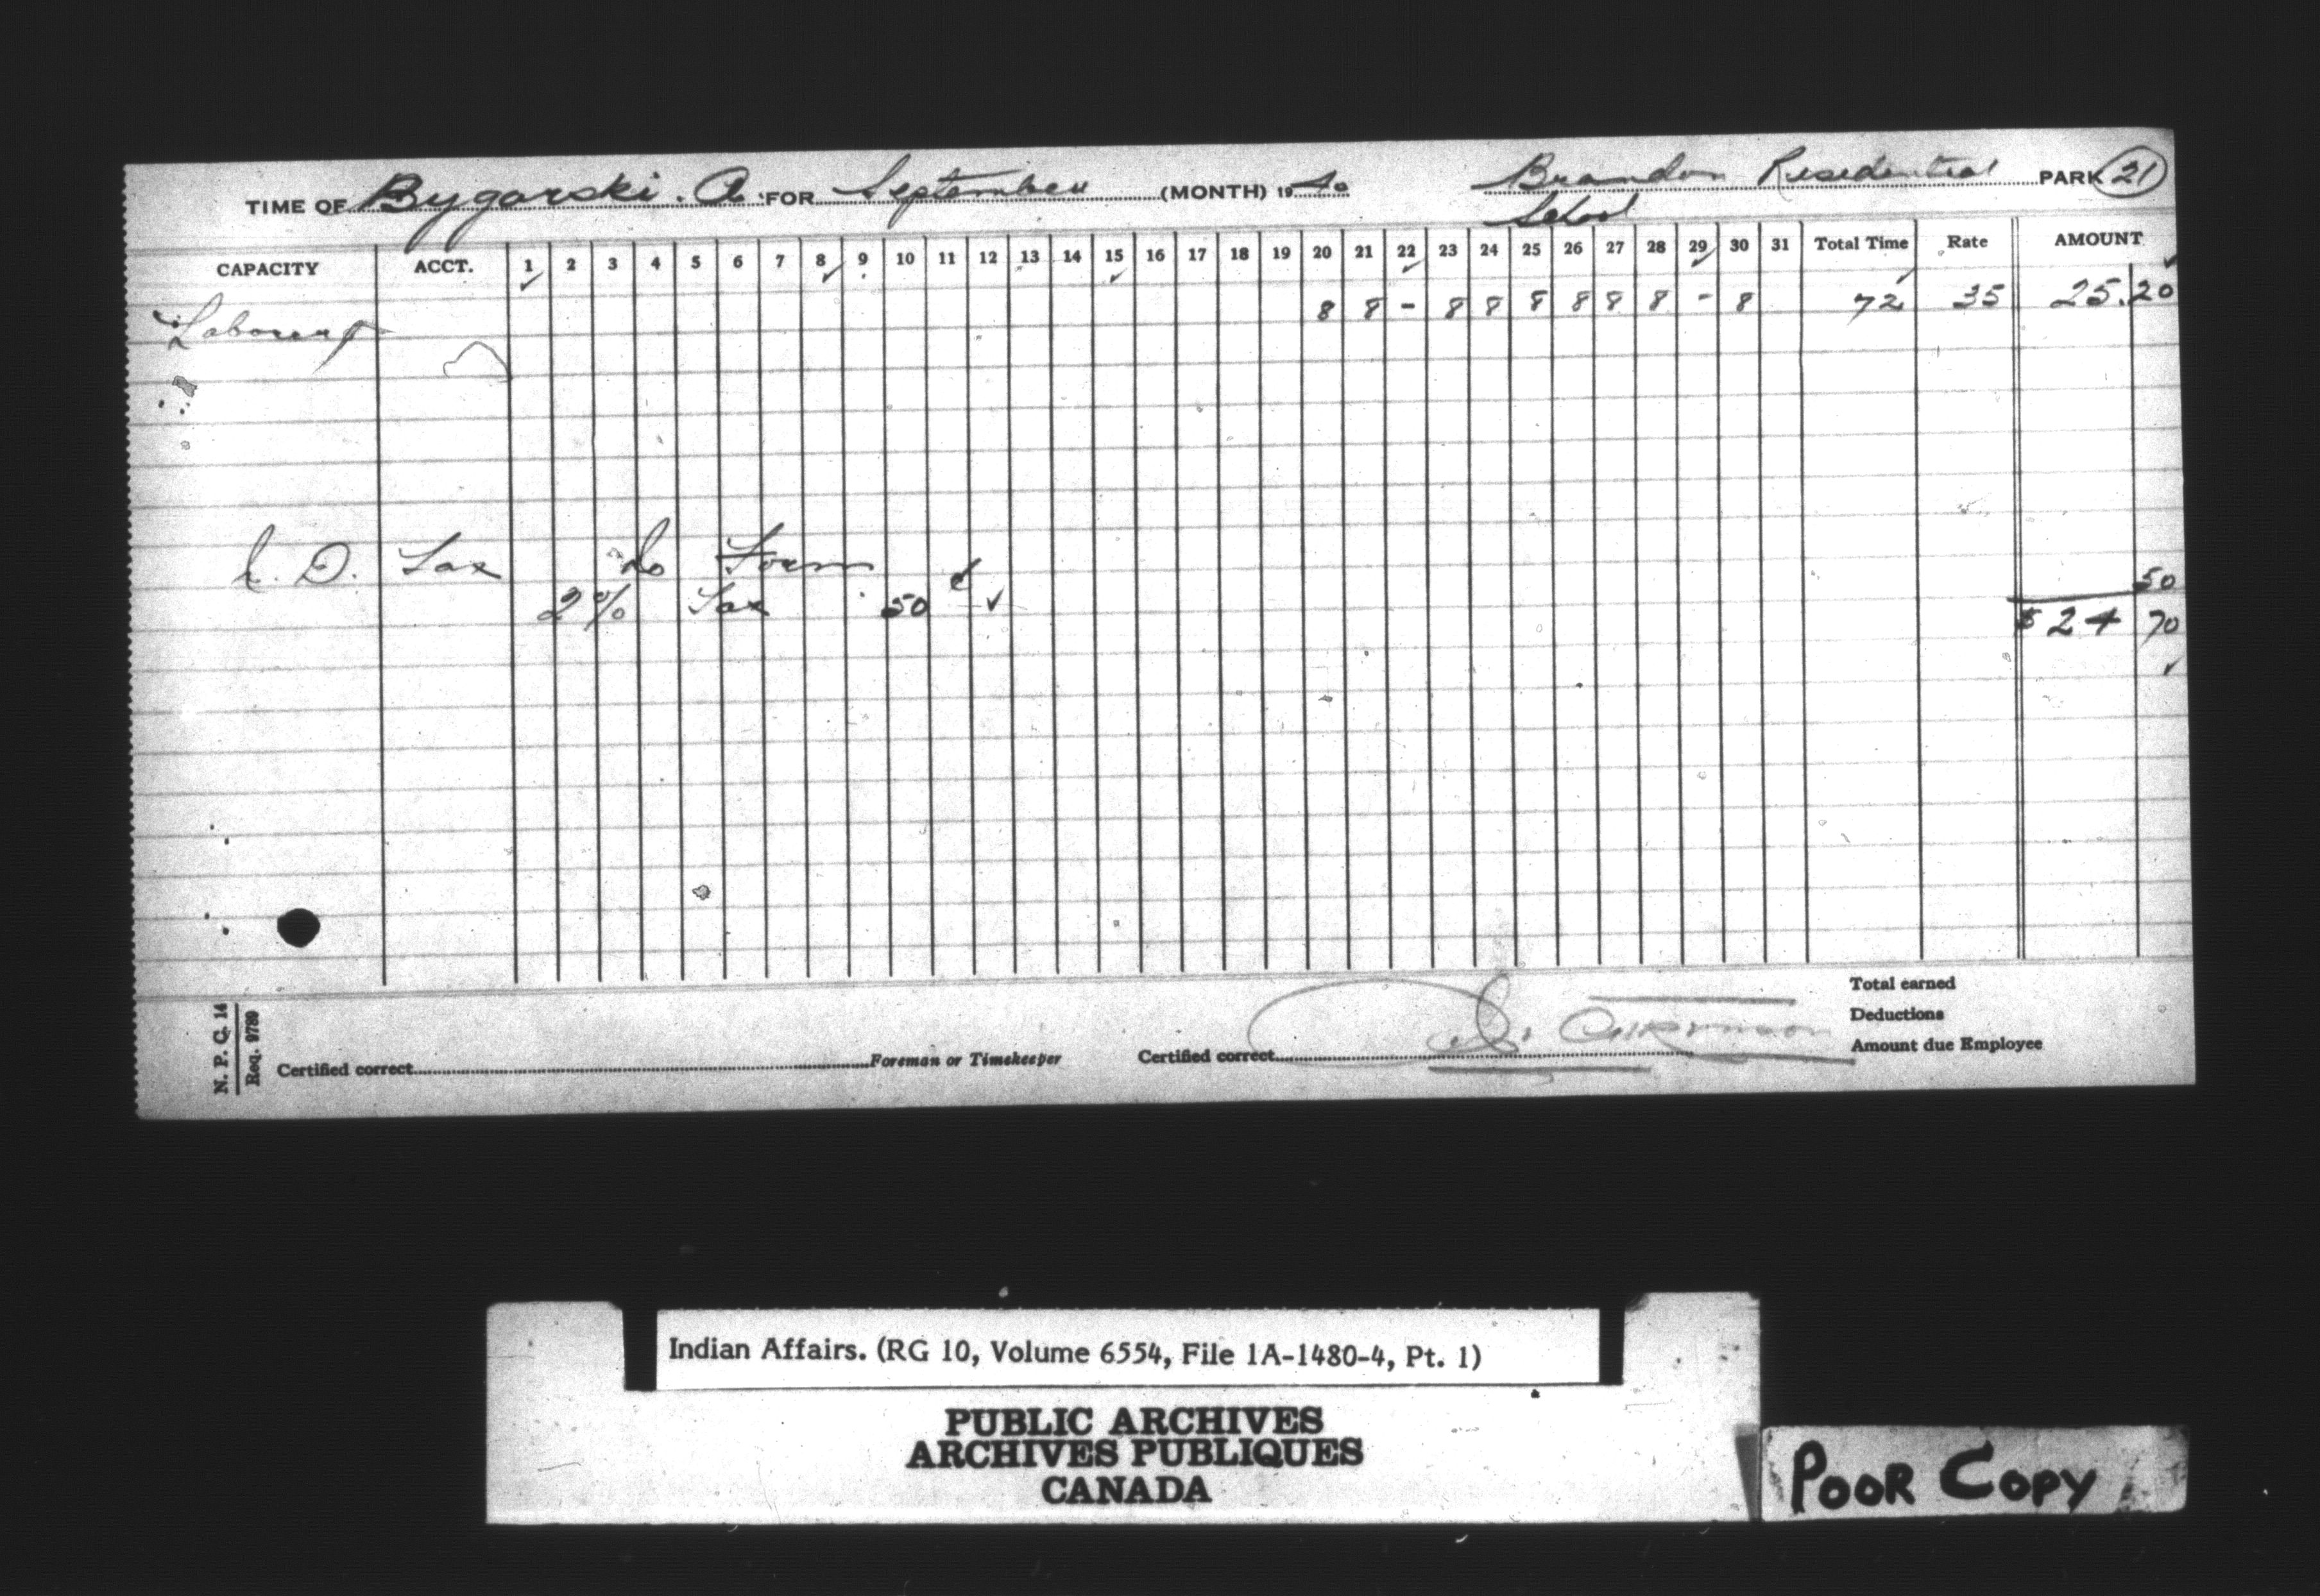 TIME OF Bygarski. A. FOR September (MONTH) 1940 Brandon Residential School PARK 21
CAPACITY ACCT. 1 2 3 4 5 6 7 8 9 10 11 12 13 14 15 16 17 18 19 20 21 22 23 24 25 26 27 28 29 30 31 Total Time Rate AMOUNT
Labourer 8 8 - 8 8 8 8 8 8 - 8 72 35 25.20
Tax Form
50
2% Tax 50 ¢ ✓
$ 24 70
Total earned
Deductions
Amount due Employee
Certified correct Foreman or Timekeeper Certified correct
N. P. C. 14
Req. 9789
Indian Affairs. (RG 10, Volume 6554, File 1A-1480-4, Pt. 1)
PUBLIC ARCHIVES
ARCHIVES PUBLIQUES
CANADA
POOR COPY